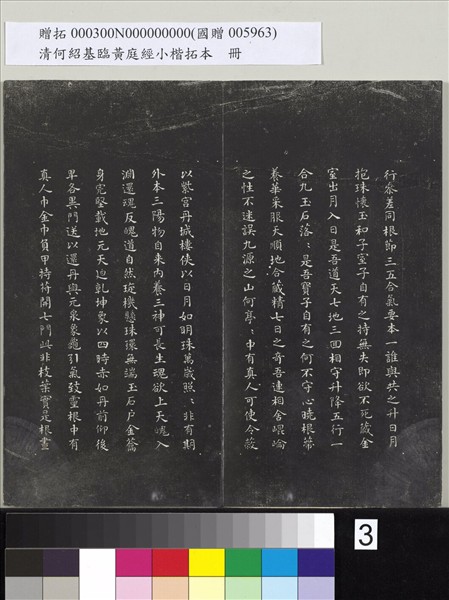 贈拓 000300N000000000(國贈 005963)
清何紹基臨黃庭經小楷拓本　冊
行參差同根節三五合氣要本一誰與共之升日月
抱珠懷玉和子室子自有之持無失即欲不死藏金
室出月入日是吾道天七地三回相守升降五行一
合九玉石落〻是吾寶子自有之何不守心曉根蒂
養華采服天順地合藏精七日之奇吾連相舍崐崘
之性不迷誤九源之山何亭〻中有真人可使令蔽
以紫宮丹城樓俠以日月如明珠萬歲照〻非有期
外本三陽物自來內養三神可長生魂欲上天魄入
淵還魂反魄道自然琁機懸珠環無端玉石戶金籥
身完堅載地元天迫乾坤象以四時赤如丹前仰後
卑各異門送以還丹與元泉象龜引氣致靈根中有
真人巾金巾負甲持符開七門此非枝葉實是根晝
3